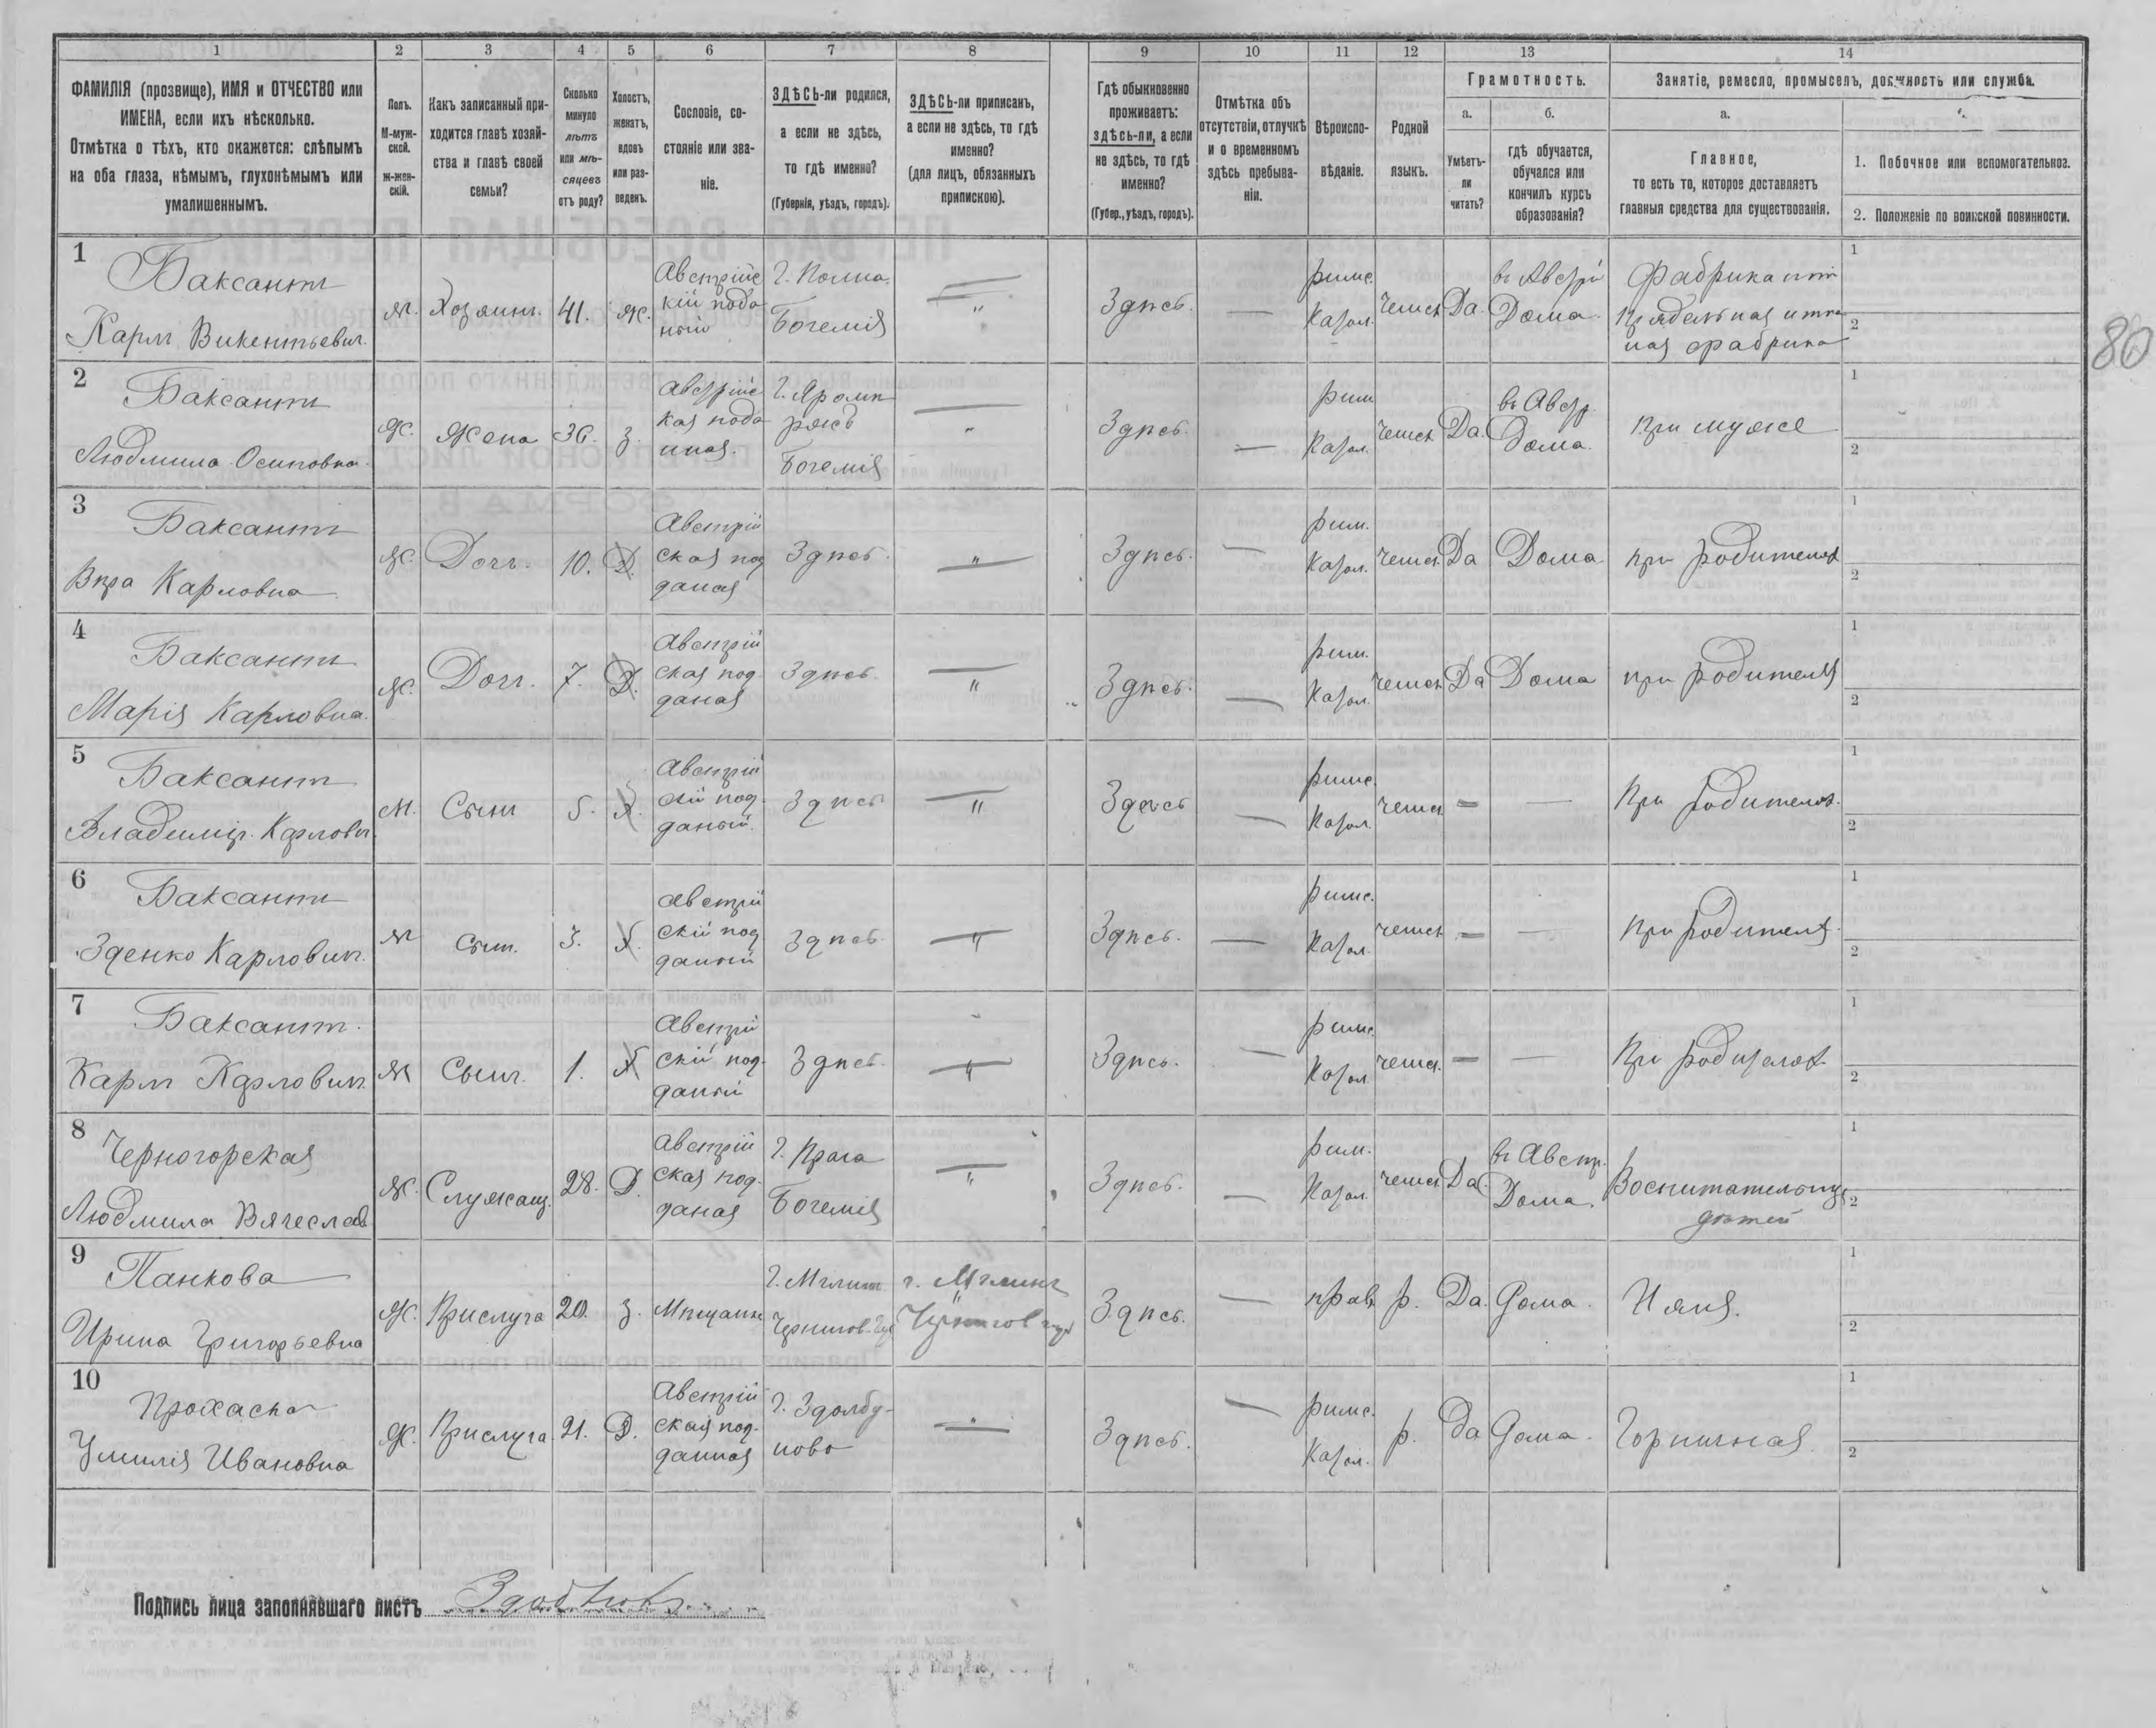 1 2 3 4 5 6 7 8 9 10 11 12 13 14
ФАМИЛІЯ (прозвище), ИМЯ и ОТЧЕСТВО или
ИМЕНА, если ихъ нѣсколько.
Отмѣтка о тѣхъ, кто окажется: слѣпымъ
на оба глаза, нѣмымъ, глухонѣмымъ или
умалишеннымъ.
Полъ.
М-муж-
ской.
Ж-жен-
скій.
Какъ записанный при-
ходится главѣ хозяй-
ства и главѣ своей
семьи?
Сколько
минуло
лѣтъ
или мѣ-
сяцевъ
отъ роду?
Холостъ,
женатъ,
вдовъ
или раз-
веденъ.
Сословіе, со-
стояніе или зва-
ніе.
ЗДѢСЬ-ли родился,
а если не здѣсь,
то гдѣ именно?
(Губернія, уѣздъ, городъ).
ЗДѢСЬ-ли приписанъ,
а если не здѣсь, то гдѣ
именно?
(для лицъ, обязанныхъ
припискою).
Гдѣ обыкновенно
проживаетъ:
здѣсь-ли, а если
не здѣсь, то гдѣ
именно?
(Губер., уѣздъ, городъ).
Отмѣтка объ
отсутствіи, отлучкѣ
и о временномъ
здѣсь пребыва-
ніи.
Вѣроиспо-
вѣданіе.
Родной
языкъ.
Грамотность.
а.
Умѣетъ-
ли
читать?
б.
гдѣ обучается,
обучался или
кончилъ курсъ
образованія?
Занятіе, ремесло, промыселъ, должность или служба.
а.
Главное,
то есть то, которое доставляетъ
главныя средства для существованія.
1. Побочное или вспомогательное.
2. Положеніе по воинской повинности.
80
1
Баксантъ
Карлъ Викентьевич.
м. Хозяинъ. 41. ж.
Австрійс
кій подд
ный
Богемія
"
Здѣсь. —
римс.
Катол.
чешск. Да.
въ Австрі
Дома.
Фабрикантъ
Прядельная и тка
ная фабрика
1
2
2
Баксантъ
Людмила Осиповна.
ж. Жена 36. з.
Австрійс
кая подд
нная.
Богемія
"
Здѣсь. —
рим
Катол.
чешск. Да.
въ Австр.
Дома.
При мужѣ
1
2
3
Баксантъ
Вѣра Карловна
ж. Доч. 10. Д.
Австрій
ская под
даная
Здѣсь.
"
Здѣсь. —
рим.
Катол.
чешск. Да Дома
при родителях
1
2
4
Баксантъ
Марія Карловна.
ж. Доч. 7. Д.
Австрій
ская под
даная
Здѣсь.
"
Здѣсь. —
рим.
Катол.
чешск. Да Дома
при родителя
1
2
5
Баксантъ
Владиміръ Карлович
м. Сынъ 5. Х.
Австрій
скій под
даный.
Здѣсь
"
Здѣсь —
римс.
Катол.
чешск — —
При родителях.
1
2
6
Баксантъ
Зденко Карлович.
м Сын. 3. Х.
Австрій
скій под
даный
Здѣсь.
"
Здѣсь. —
римс.
Катол.
чешск — —
При родителя.
1
2
7
Баксантъ.
Карлъ Карлович
м Сынъ. 1. Х
Австрій
скій под-
даный
Здѣсь.
"
Здѣсь. —
римс.
Катол
чешск. — —
При родителях
1
2
8
Черногорская
Людмила Вячеслав
ж. Служащ. 28. Д.
Австрій
ская под-
даная
г. Прага
Богемія
"
Здѣсь. —
рим.
Катол.
чешск Да.
въ Австр.
Дома.
Воспитательница
дѣтей
1
2
9
Панкова
Ирина Григорьевна
ж. Прислуга 20. з. Мѣщанк
г. Мглинъ
Чернигов. Губ
г. Мглинъ
Чернигов губ
Здѣсь. — прав. р. Да. Дома. Няня.
1
2
10
Прохаска
Эмилія Ивановна
ж. Прислуга 21. Д.
Австрій
ская под-
данная
г. Здолбу-
ново
"
Здѣсь. —
римс.
Катол.
р. Да Дома.
Горничная.
1
2
Подпись лица заполнявшаго листъ